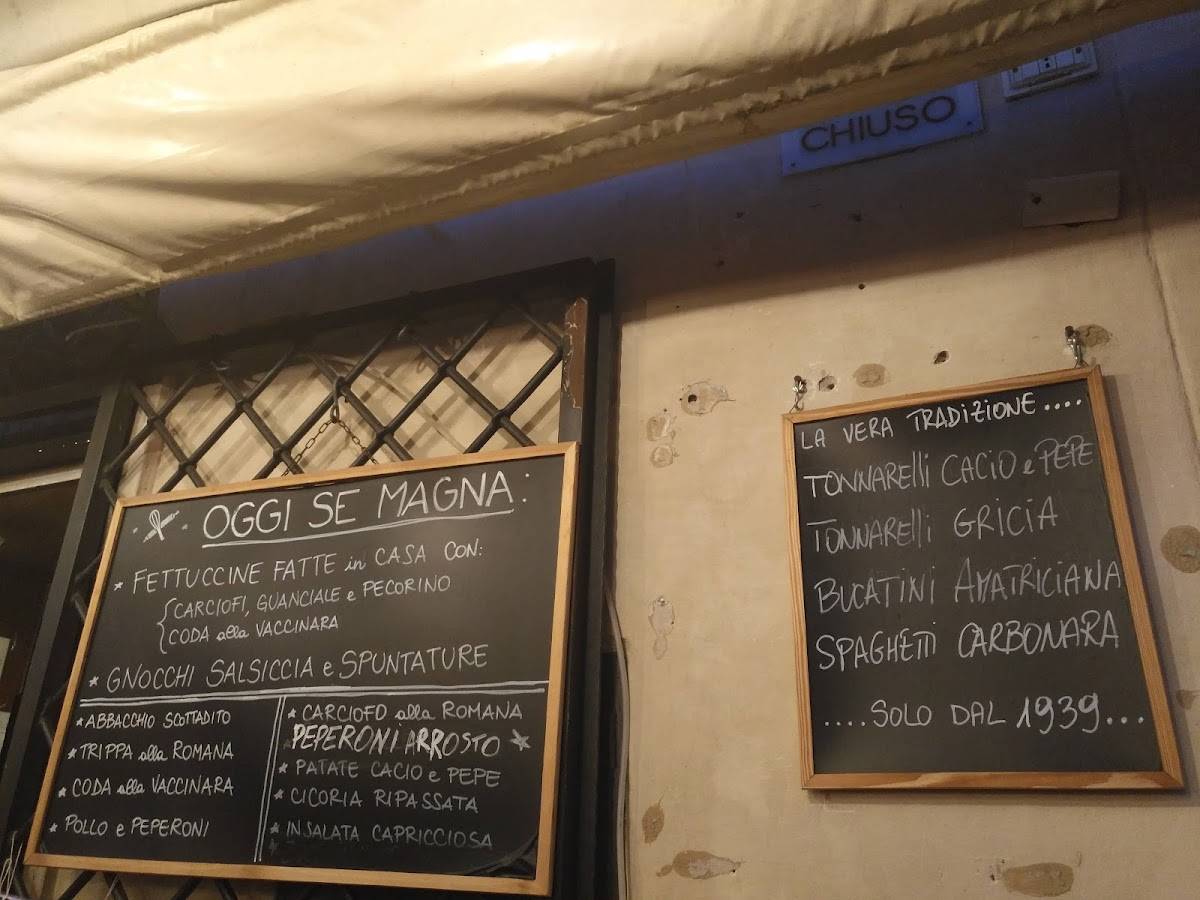 CHIUSO
OGGI SE MAGNA:
* FETTUCCINE FATTE in CASA CON:
{CARCIOFI, GUANCIALE e PECORINO
CODA alla VACCINARA
* GNOCCHI SALSICCIA e SPUNTATURE
* ABBACCHIO SCOTTADITO
* TRIPPA alla ROMANA
* CODA alla VACCINARA
* POLLO e PEPERONI
* CARCIOFO alla ROMANA
PEPERONI ARROSTO *
* PATATE CACIO e PEPE
* CICORIA RIPASSATA
* INSALATA CAPRICCIOSA
LA VERA TRADIZIONE....
TONNARELLI CACIO e PEPE
TONNARELLI GRICIA
BUCATINI AMATRICIANA
SPAGHETTI CARBONARA
....SOLO DAL 1939...